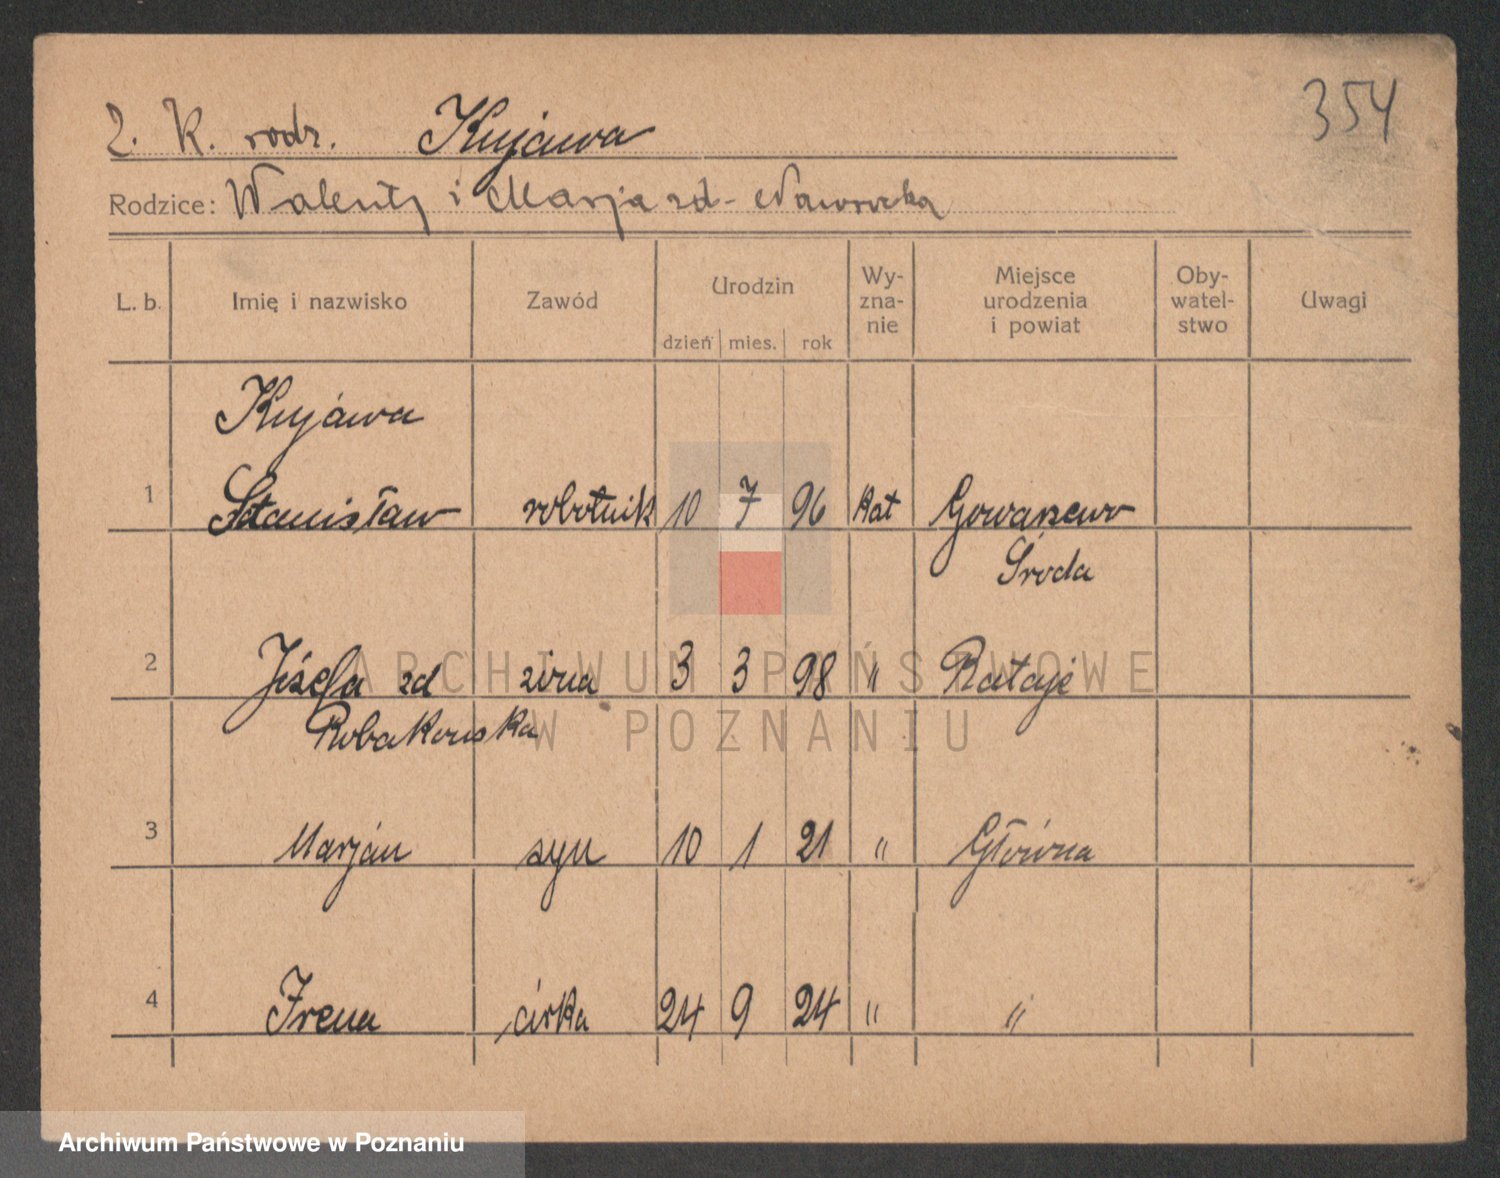 354
2. K. rodz. Kujawa
Rodzice: Walenty i Marja zd- Nawrocka
L. b. Imię i nazwisko Zawód Urodzin dzień mies. rok Wy-zna-nie Miejsce urodzenia i powiat Oby-watel-stwo Uwagi
Kujawa
1 Stanisław robotnik 10 7 96 kat Gowarzewo
Środa
2 Józefa zd żona 3 3 98 " Rataje
Robakowska
3 Marjan syn 10 1 21 " Główna
4 Irena córka 24 9 24 " "
ARCHIWUM PAŃSTWOWE
W POZNANIU
Archiwum Państwowe w Poznaniu